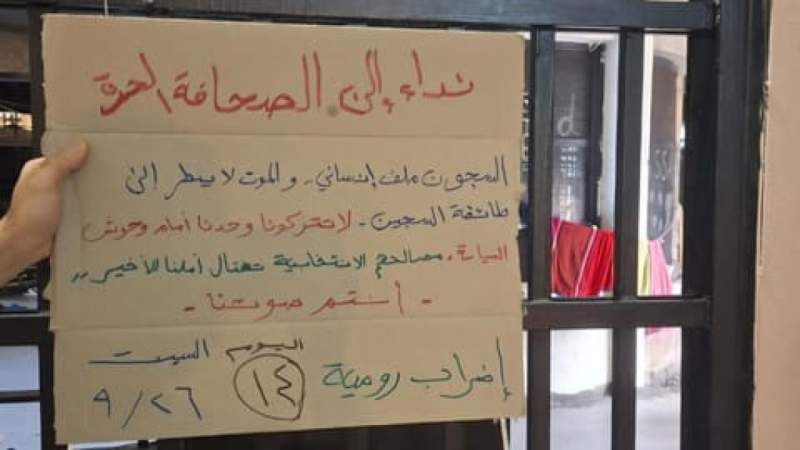 نداء إلى الصحافة الحرة
السجون ملف إنساني - والموت لا ينظر إلى
طائفة السجين - لا تتركونا وحدنا أمام وحوش
السياسة، مصالحهم الانتخابية تغتال أملنا الأخير،،
- أنتم صوتنا -
إضراب رومية ١٤ اليوم السبت
٩/٢٦